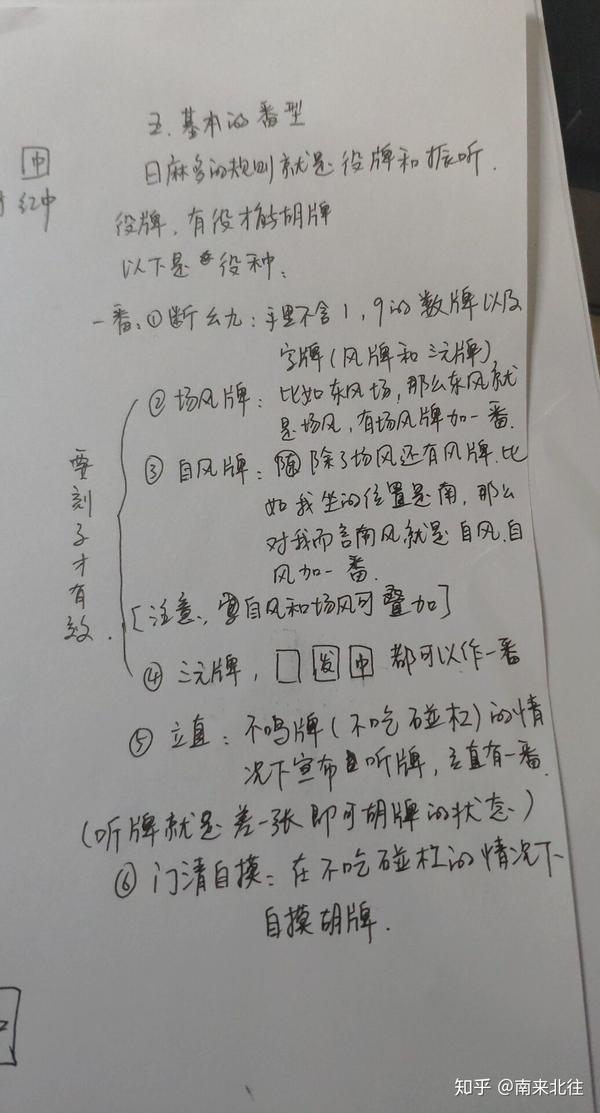 中
红中
五.基本的番型
日麻多的规则就是役牌和振听.
役牌,有役才能胡牌
以下是役种:
一番:①断幺九:手里不含1,9的数牌以及
字牌(风牌和三元牌)
②场风牌:比如东风场,那么东风就
是场风,有场风牌加一番.
③自风牌:除了场风还有风牌.比
如我坐的位置是南,那么
对我而言南风就是自风.自
风加一番.
[注意:自风和场风可叠加]
要刻子才有效.
④三元牌,□ 发 中 都可以作一番
⑤立直:不鸣牌(不吃碰杠)的情
况下宣布听牌,立直有一番.
(听牌就是差一张即可胡牌的状态)
⑥门清自摸:在不吃碰杠的情况下
自摸胡牌.
知乎 @南来北往